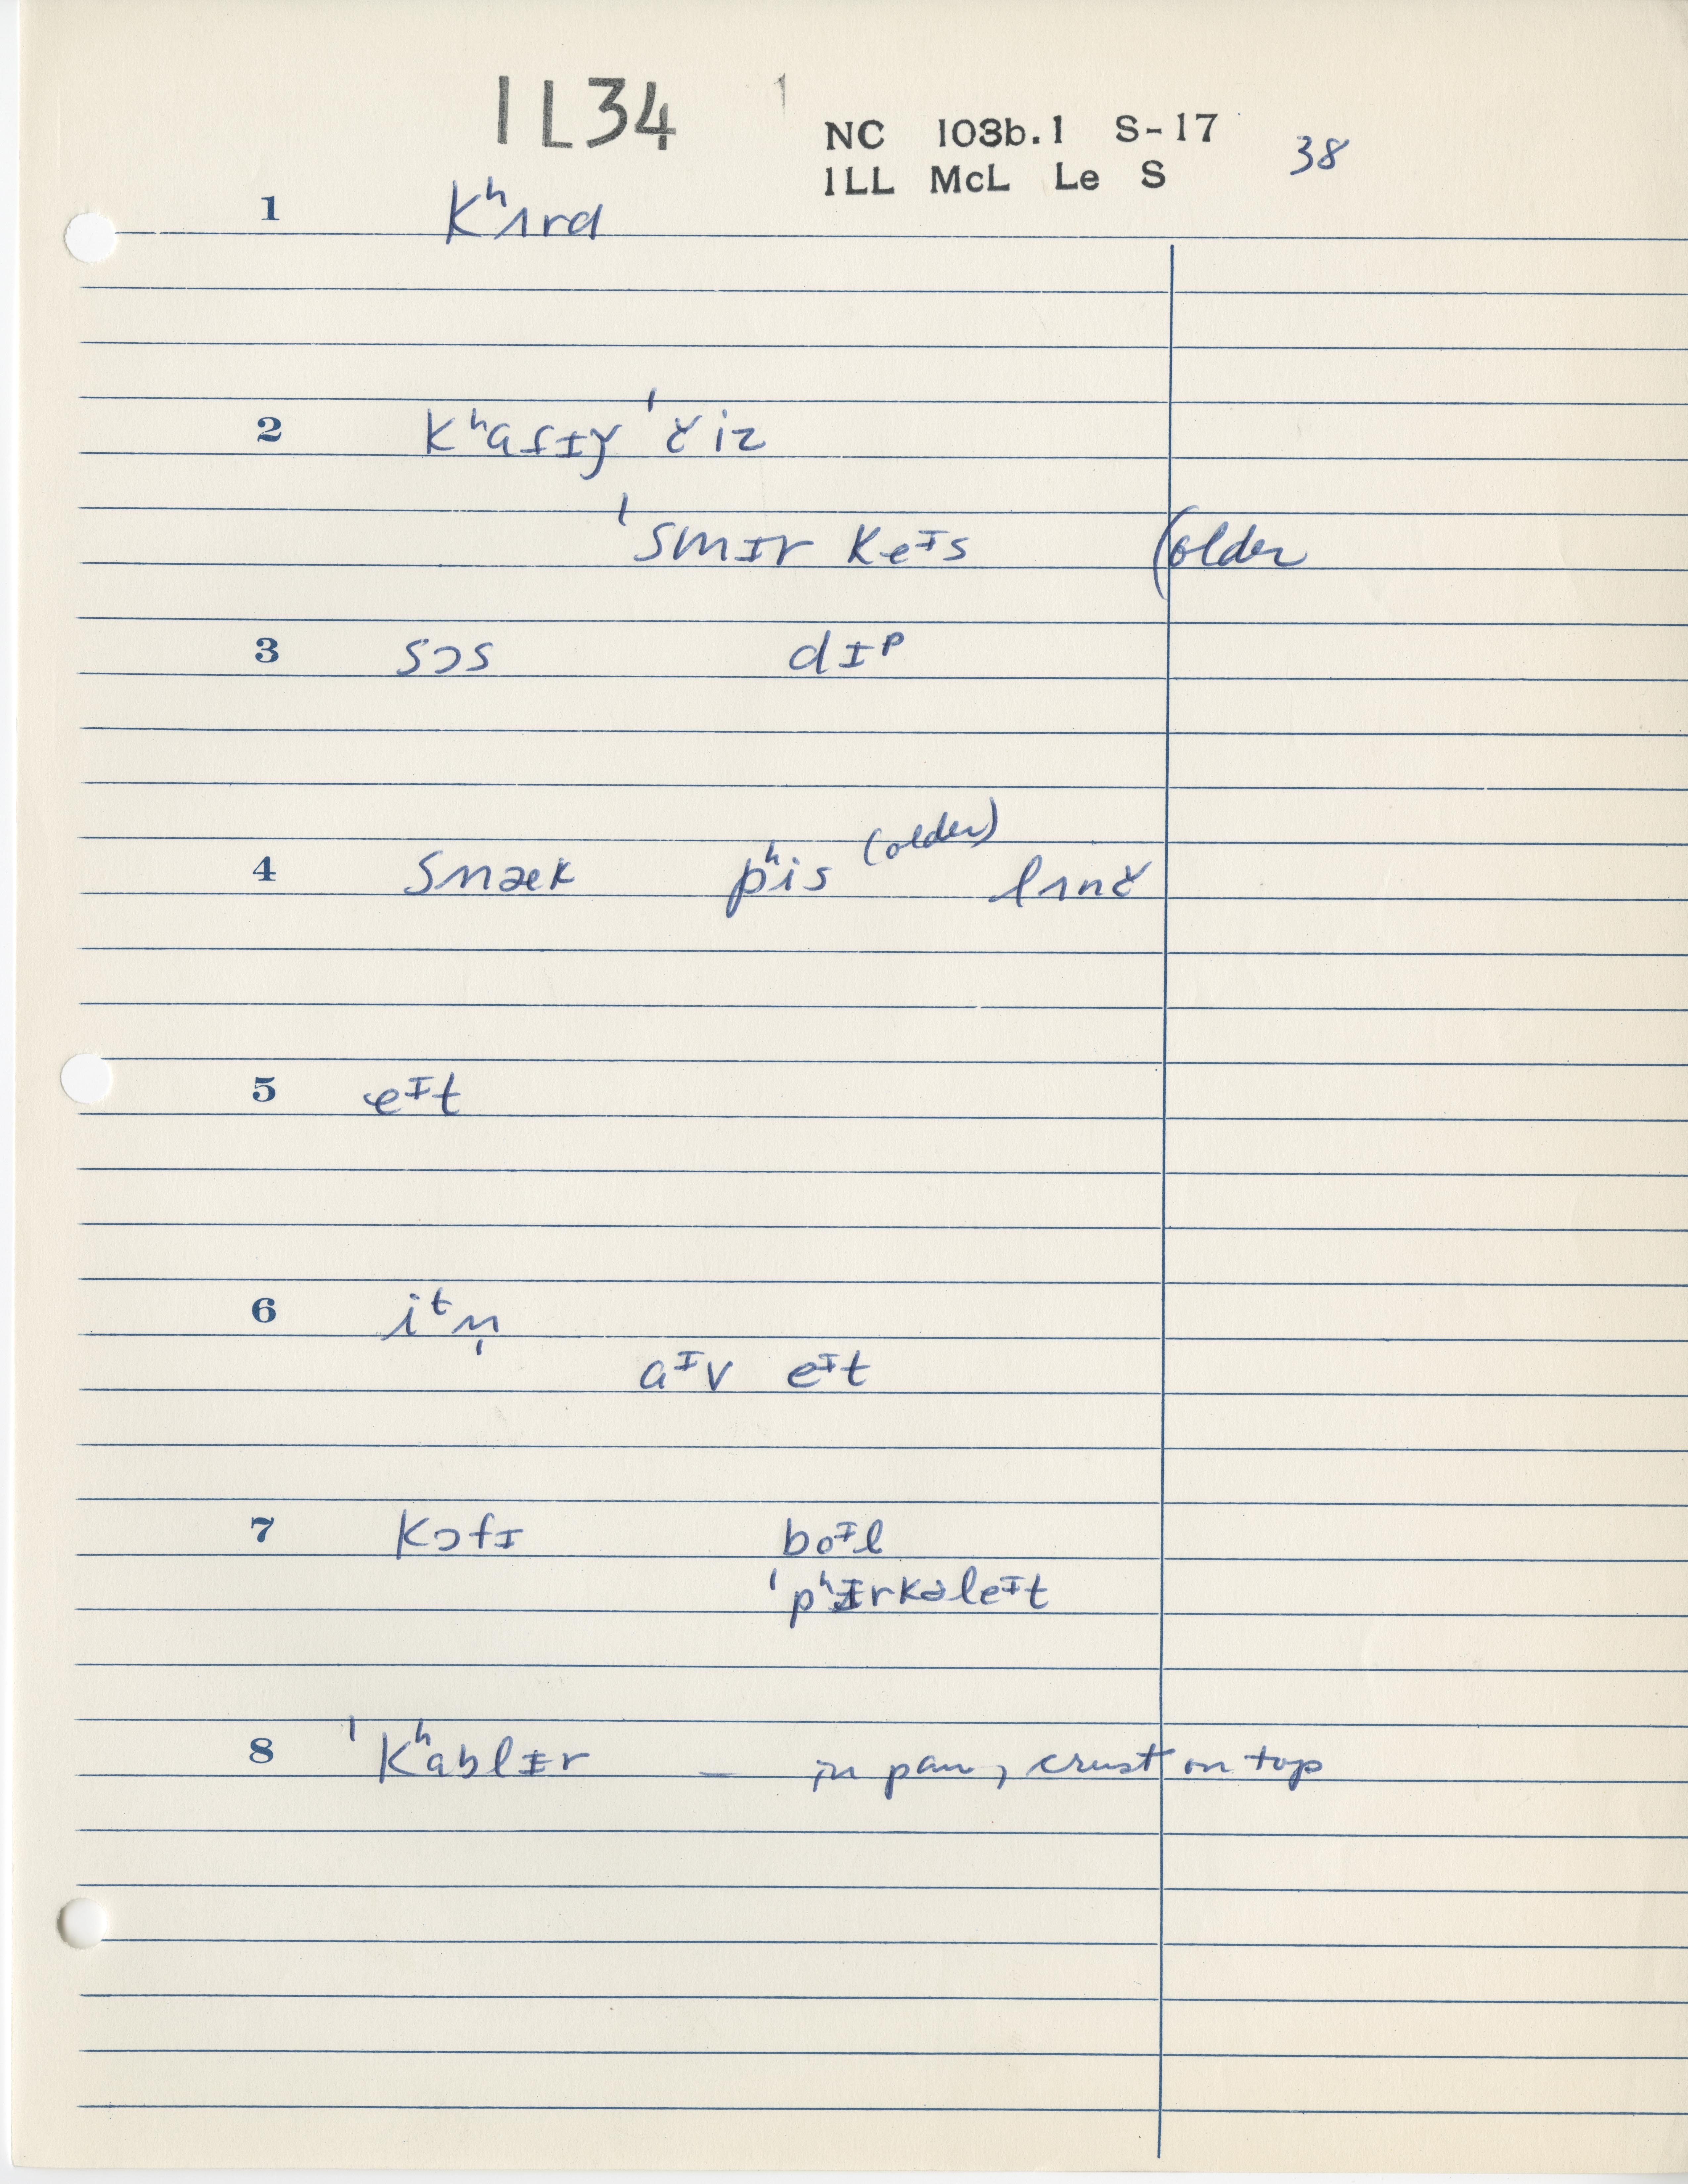 1L34 1
NC 103b.1 S-17 38
1LL McL Le S
1 Kʰʌrd
2 ˈčiz
ˈsmɪr keᴵs (older
3 sɔs dɪᵖ
4 snæk pʰis (older) lʌnč
5 eᴵt
6 iᵗn̩
aᴵv eᴵt
7 kɔfɪ boᴵl
ˈpʰɪrkəleᴵt
8 ˈKʰablɪr – in pan, crust on top